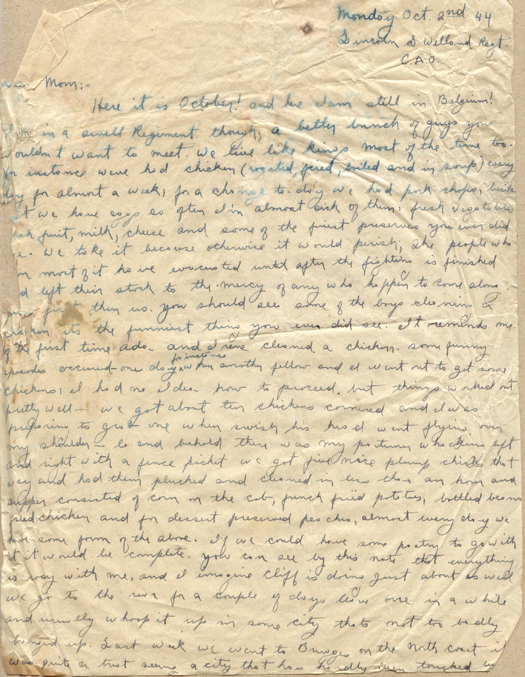 Monday Oct. 2nd 44
Lincoln & Welland Regt
C.A.O.
Mom:-
Here it is October! and here I am still in Belgium!
in a swell Regiment though, a better bunch of guys you
wouldn't want to meet. We live like kings most of the time too.
for instance we've had chicken (roasted, fried, boiled and in soup) every
day for almost a week, for a change to-day we had pork chops,
we have eggs so often I'm almost sick of them; fresh vegetables
fruit, milk, cheese and some of the finest preserves you ever did
. We take it because otherwise it would perish, the people who
own most of it have evacuated until after the fighting is finished
left their stock to the mercy of any who happen to come along.-
first then us. You should see some of the boys cleaning a
chicken its the funniest thing you ever did see. It reminds me
of the first time Ado. and I ever cleaned a chicken. some funny
occured- one day for instance another fellow and I went out to get some
chickens, I had no idea how to proceed, but things worked out
pretty well- we got about ten chickens cornered and I was
preparing to grab one when swish his head went flying over
my shoulder- lo and behold there was my partner whacking left
and right with a fence picket we got five nice plump chicks that
way and had them plucked and cleaned in less than an hour and
supper consisted of corn on the cob, french fried potatoes, bottled beans
fried chicken and for dessert preserved peaches, almost every day we
have some form of the above. If we could have some pastry to go with
it it would be complete. You can see by this note that everything
is okay with me, and I imagine Cliff is doing just about as well
we go to the rear for a couple of days leave once in a while
and usually whoop it up in some city thats not too badly
banged up. Last week we went to Bruges on the North Coast it
was quite a treat seeing a city that has hardly been touched